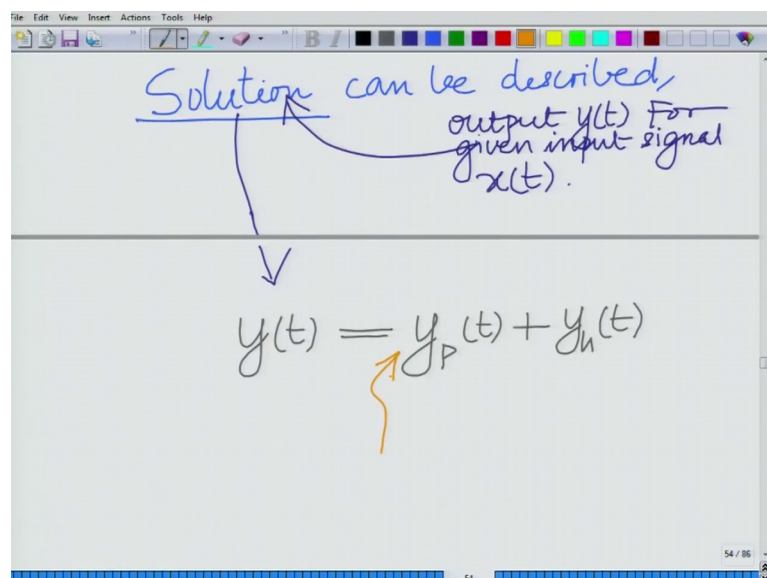 File Edit View Insert Actions Tools Help
B I
Solution can be described,
output y(t) For
given input signal
x(t).
y(t) = y_p(t) + y_h(t)
54 / 86
54